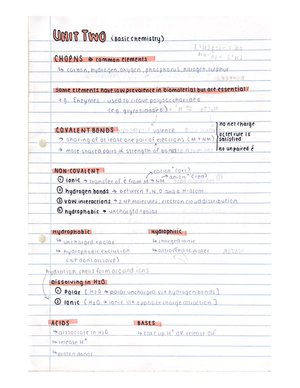 UNIT TWO (Basic Chemistry)
CHOPNS → common elements
↳ carbon, hydrogen, oxygen, phosphorus, nitrogen, sulphur
some elements have low prevalence in biomaterial but are essential
e.g. Enzymes : used to cleave polysaccharides
COVALENT BONDS
↳ sharing of at least one pair of electrons
↳ more shared pairs ↑ strength of
no net charge
octet rule is satisfied
no unpaired e⁻
NON-COVALENT
① ionic → transfer of e⁻ from
② hydrogen bonds → between F, N, O and a H-atom
③ VDW interactions →
④ hydrophobic → uncharged
Hydrophobic
Hydrophilic
↳ uncharged
↳ charged ionic
↳ hydrophobic exclusion
↳ attracted to water
(will not dissolve)
hydration shells form around ions
Dissolving in H₂O:
① Polar [H₂O → polar uncharged via hydrogen bonds]
② Ionic [H₂O → ionic via opposite charge attraction]
ACIDS
BASES
↳ dissociate in H₂O
↳ take up H⁺ or release OH⁻
↳ release H⁺
↳ proton donor